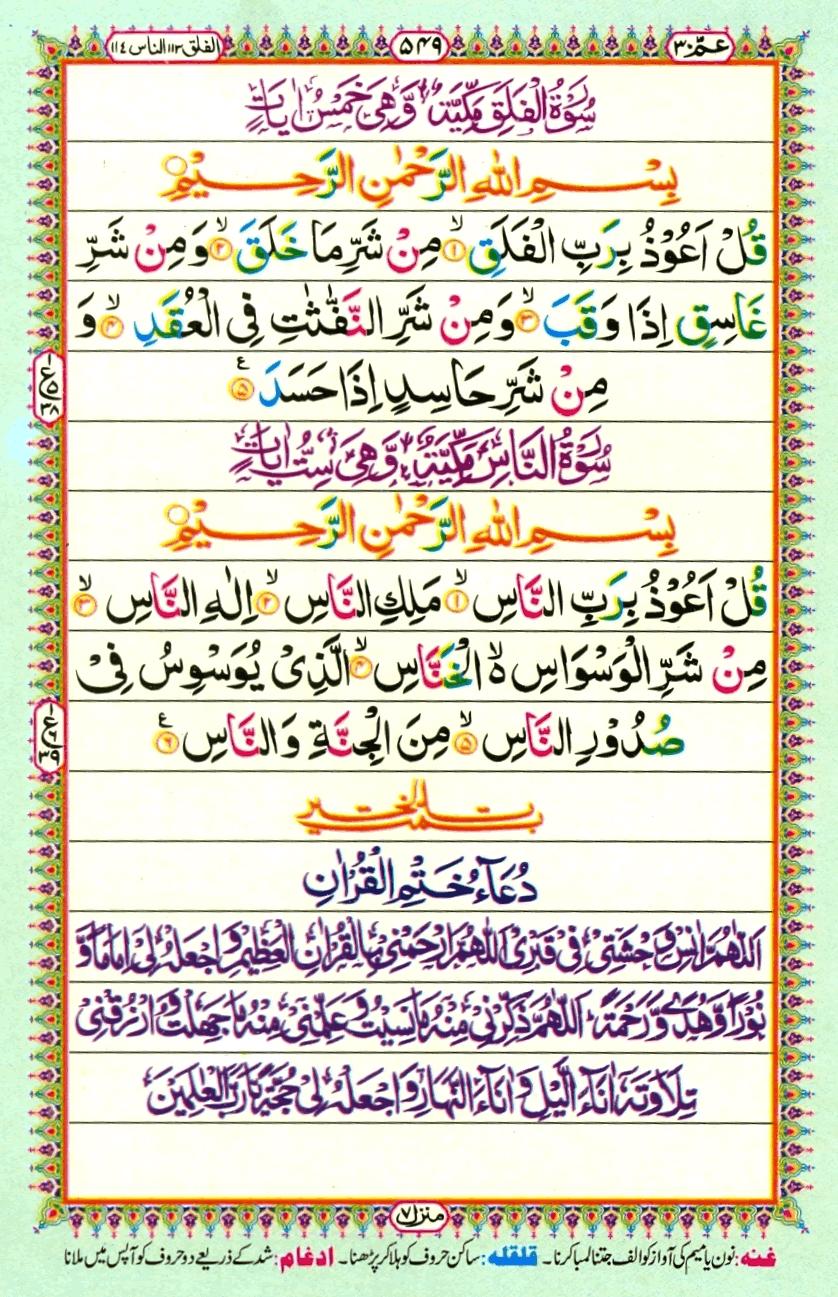 عمّ ٣٠
۵۴۹
الفلق ١١٣ الناس ١١٤
سُوْرَةُ الْفَلَقِ مَكِّيَّةٌ وَّهِيَ خَمْسُ اٰيَاتٍ
بِسْمِ اللهِ الرَّحْمٰنِ الرَّحِيْمِ
قُلْ اَعُوْذُ بِرَبِّ الْفَلَقِ ۙ﴿۱﴾ مِنْ شَرِّ مَا خَلَقَ ۙ﴿۲﴾ وَمِنْ شَرِّ
غَاسِقٍ اِذَا وَقَبَ ۙ﴿۳﴾ وَمِنْ شَرِّ النَّفّٰثٰتِ فِي الْعُقَدِ ۙ﴿۴﴾ وَ
مِنْ شَرِّ حَاسِدٍ اِذَا حَسَدَ ﴿۵﴾
سُوْرَةُ النَّاسِ مَكِّيَّةٌ وَّهِيَ سِتُّ اٰيَاتٍ
بِسْمِ اللهِ الرَّحْمٰنِ الرَّحِيْمِ
قُلْ اَعُوْذُ بِرَبِّ النَّاسِ ۙ﴿۱﴾ مَلِكِ النَّاسِ ۙ﴿۲﴾ اِلٰهِ النَّاسِ ۙ﴿۳﴾
مِنْ شَرِّ الْوَسْوَاسِ ۙ۬ الْخَنَّاسِ ۙ﴿۴﴾ الَّذِيْ يُوَسْوِسُ فِيْ
صُدُوْرِ النَّاسِ ۙ﴿۵﴾ مِنَ الْجِنَّةِ وَالنَّاسِ ﴿۶﴾
دُعَآءُ خَتْمِ الْقُرْاٰنِ
اَللّٰهُمَّ اٰنِسْ وَحْشَتِيْ فِيْ قَبْرِيْ اَللّٰهُمَّ ارْحَمْنِيْ بِالْقُرْاٰنِ الْعَظِيْمِ وَاجْعَلْهُ لِيْ اِمَامًا وَّ
نُوْرًا وَّهُدًى وَّرَحْمَةً ؕ اَللّٰهُمَّ ذَكِّرْنِيْ مِنْهُ مَا نَسِيْتُ وَعَلِّمْنِيْ مِنْهُ مَا جَهِلْتُ وَارْزُقْنِيْ
تِلَاوَتَهٗ اٰنَآءَ الَّيْلِ وَاٰنَآءَ النَّهَارِ وَاجْعَلْهُ لِيْ حُجَّةً يَّا رَبَّ الْعٰلَمِيْنَ
منزل ۷
غنہ: نون یا میم کی آواز کو الف جتنا لمبا کرنا۔ قلقلہ: ساکن حروف کو ہلا کر پڑھنا۔ ادغام: شد کے ذریعے دو حروف کو آپس میں ملانا